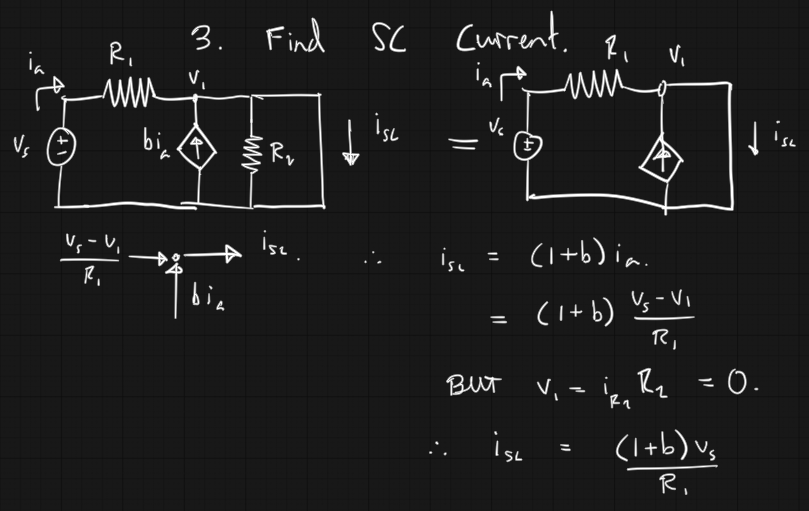 3. Find SC Current.
i_a R_1 V_1
V_s + − b i_a R_2 i_sc
=
i_a R_1 V_1
V_s + − i_sc
(V_s − V_1)/R_1 → i_sc. b i_a
∴ i_sc = (1+b) i_a.
= (1+b) (V_s − V_1)/R_1
BUT V_1 = i_R2 R_2 = 0.
∴ i_sc = (1+b) V_s / R_1